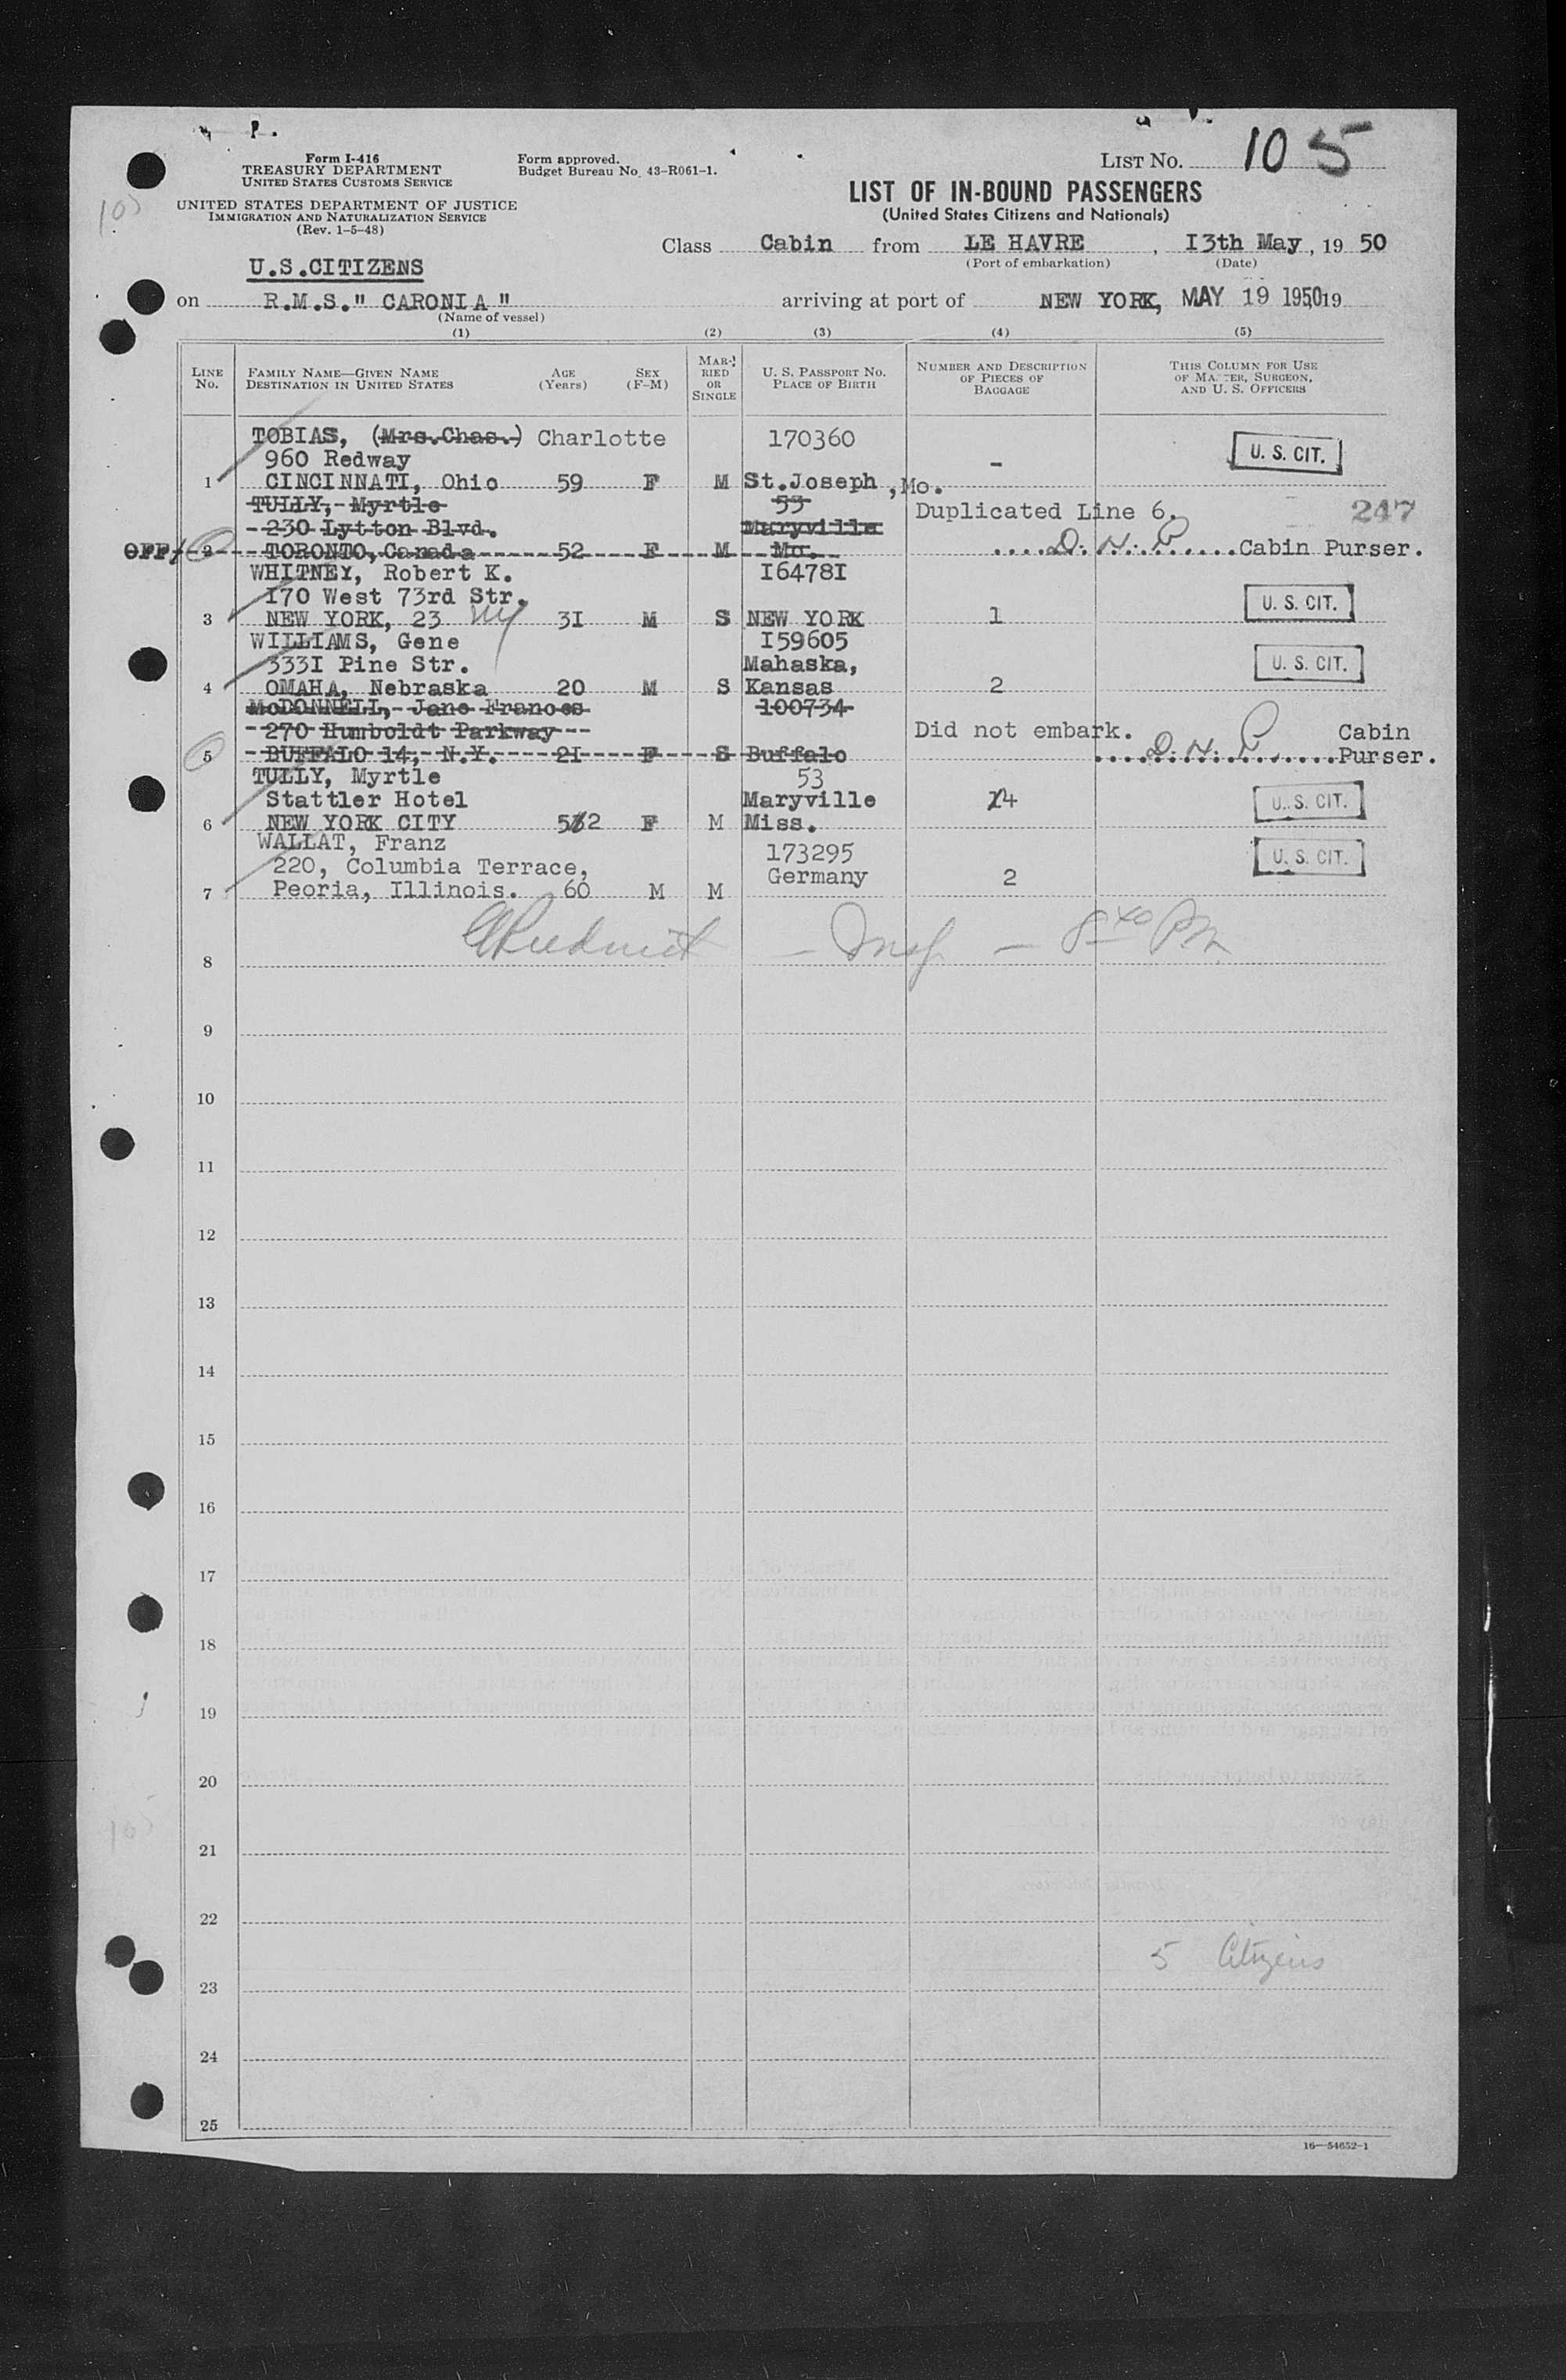 Form I-416
TREASURY DEPARTMENT
UNITED STATES CUSTOMS SERVICE
UNITED STATES DEPARTMENT OF JUSTICE
IMMIGRATION AND NATURALIZATION SERVICE
(Rev. 1-5-48)
Form approved.
Budget Bureau No. 43-R061-1.
LIST NO. 105
105
LIST OF IN-BOUND PASSENGERS
(United States Citizens and Nationals)
Class Cabin from LE HAVRE, I3th May, 19 50
(Port of embarkation) (Date)
U.S.CITIZENS
on R.M.S." CARONIA " arriving at port of NEW YORK, MAY 19 195019
(Name of vessel)
(1) (2) (3) (4) (5)
LINE NO. FAMILY NAME—GIVEN NAME DESTINATION IN UNITED STATES AGE (Years) SEX (F-M) MARRIED OR SINGLE U. S. PASSPORT NO. PLACE OF BIRTH NUMBER AND DESCRIPTION OF PIECES OF BAGGAGE THIS COLUMN FOR USE OF MASTER, SURGEON, AND U. S. OFFICERS
TOBIAS, (Mrs.Chas.) Charlotte 170360
960 Redway - U. S. CIT.
1 CINCINNATI, Ohio 59 F M St.Joseph ,Mo.
TULLY, Myrtle 53
230 Lytton Blvd. Maryville Duplicated Line 6. 247
OFF/ 2 TORONTO, Canada 52 F M Mo. D. N. P. Cabin Purser.
WHITNEY, Robert K. I6478I
I70 West 73rd Str. U. S. CIT.
3 NEW YORK, 23 NY 3I M S NEW YORK 1
WILLIAMS, Gene I59605
333I Pine Str. Mahaska, U. S. CIT.
4 OMAHA, Nebraska 20 M S Kansas 2
McDONNELL, Jane Frances 100734
270 Humboldt Parkway Did not embark. Cabin
5 BUFFALO 14, N.Y. 2I F S Buffalo D. N. P. Purser.
TULLY, Myrtle 53
Stattler Hotel Maryville 4 U. S. CIT.
6 NEW YORK CITY 52 F M Miss.
WALLAT, Franz 173295
220, Columbia Terrace, Germany 2 U. S. CIT.
7 Peoria, Illinois. 60 M M
Insp. PM
8
9
10
11
12
13
14
15
16
17
18
19
20
21
105
22
5 Citizens
23
24
25
16—54652-1